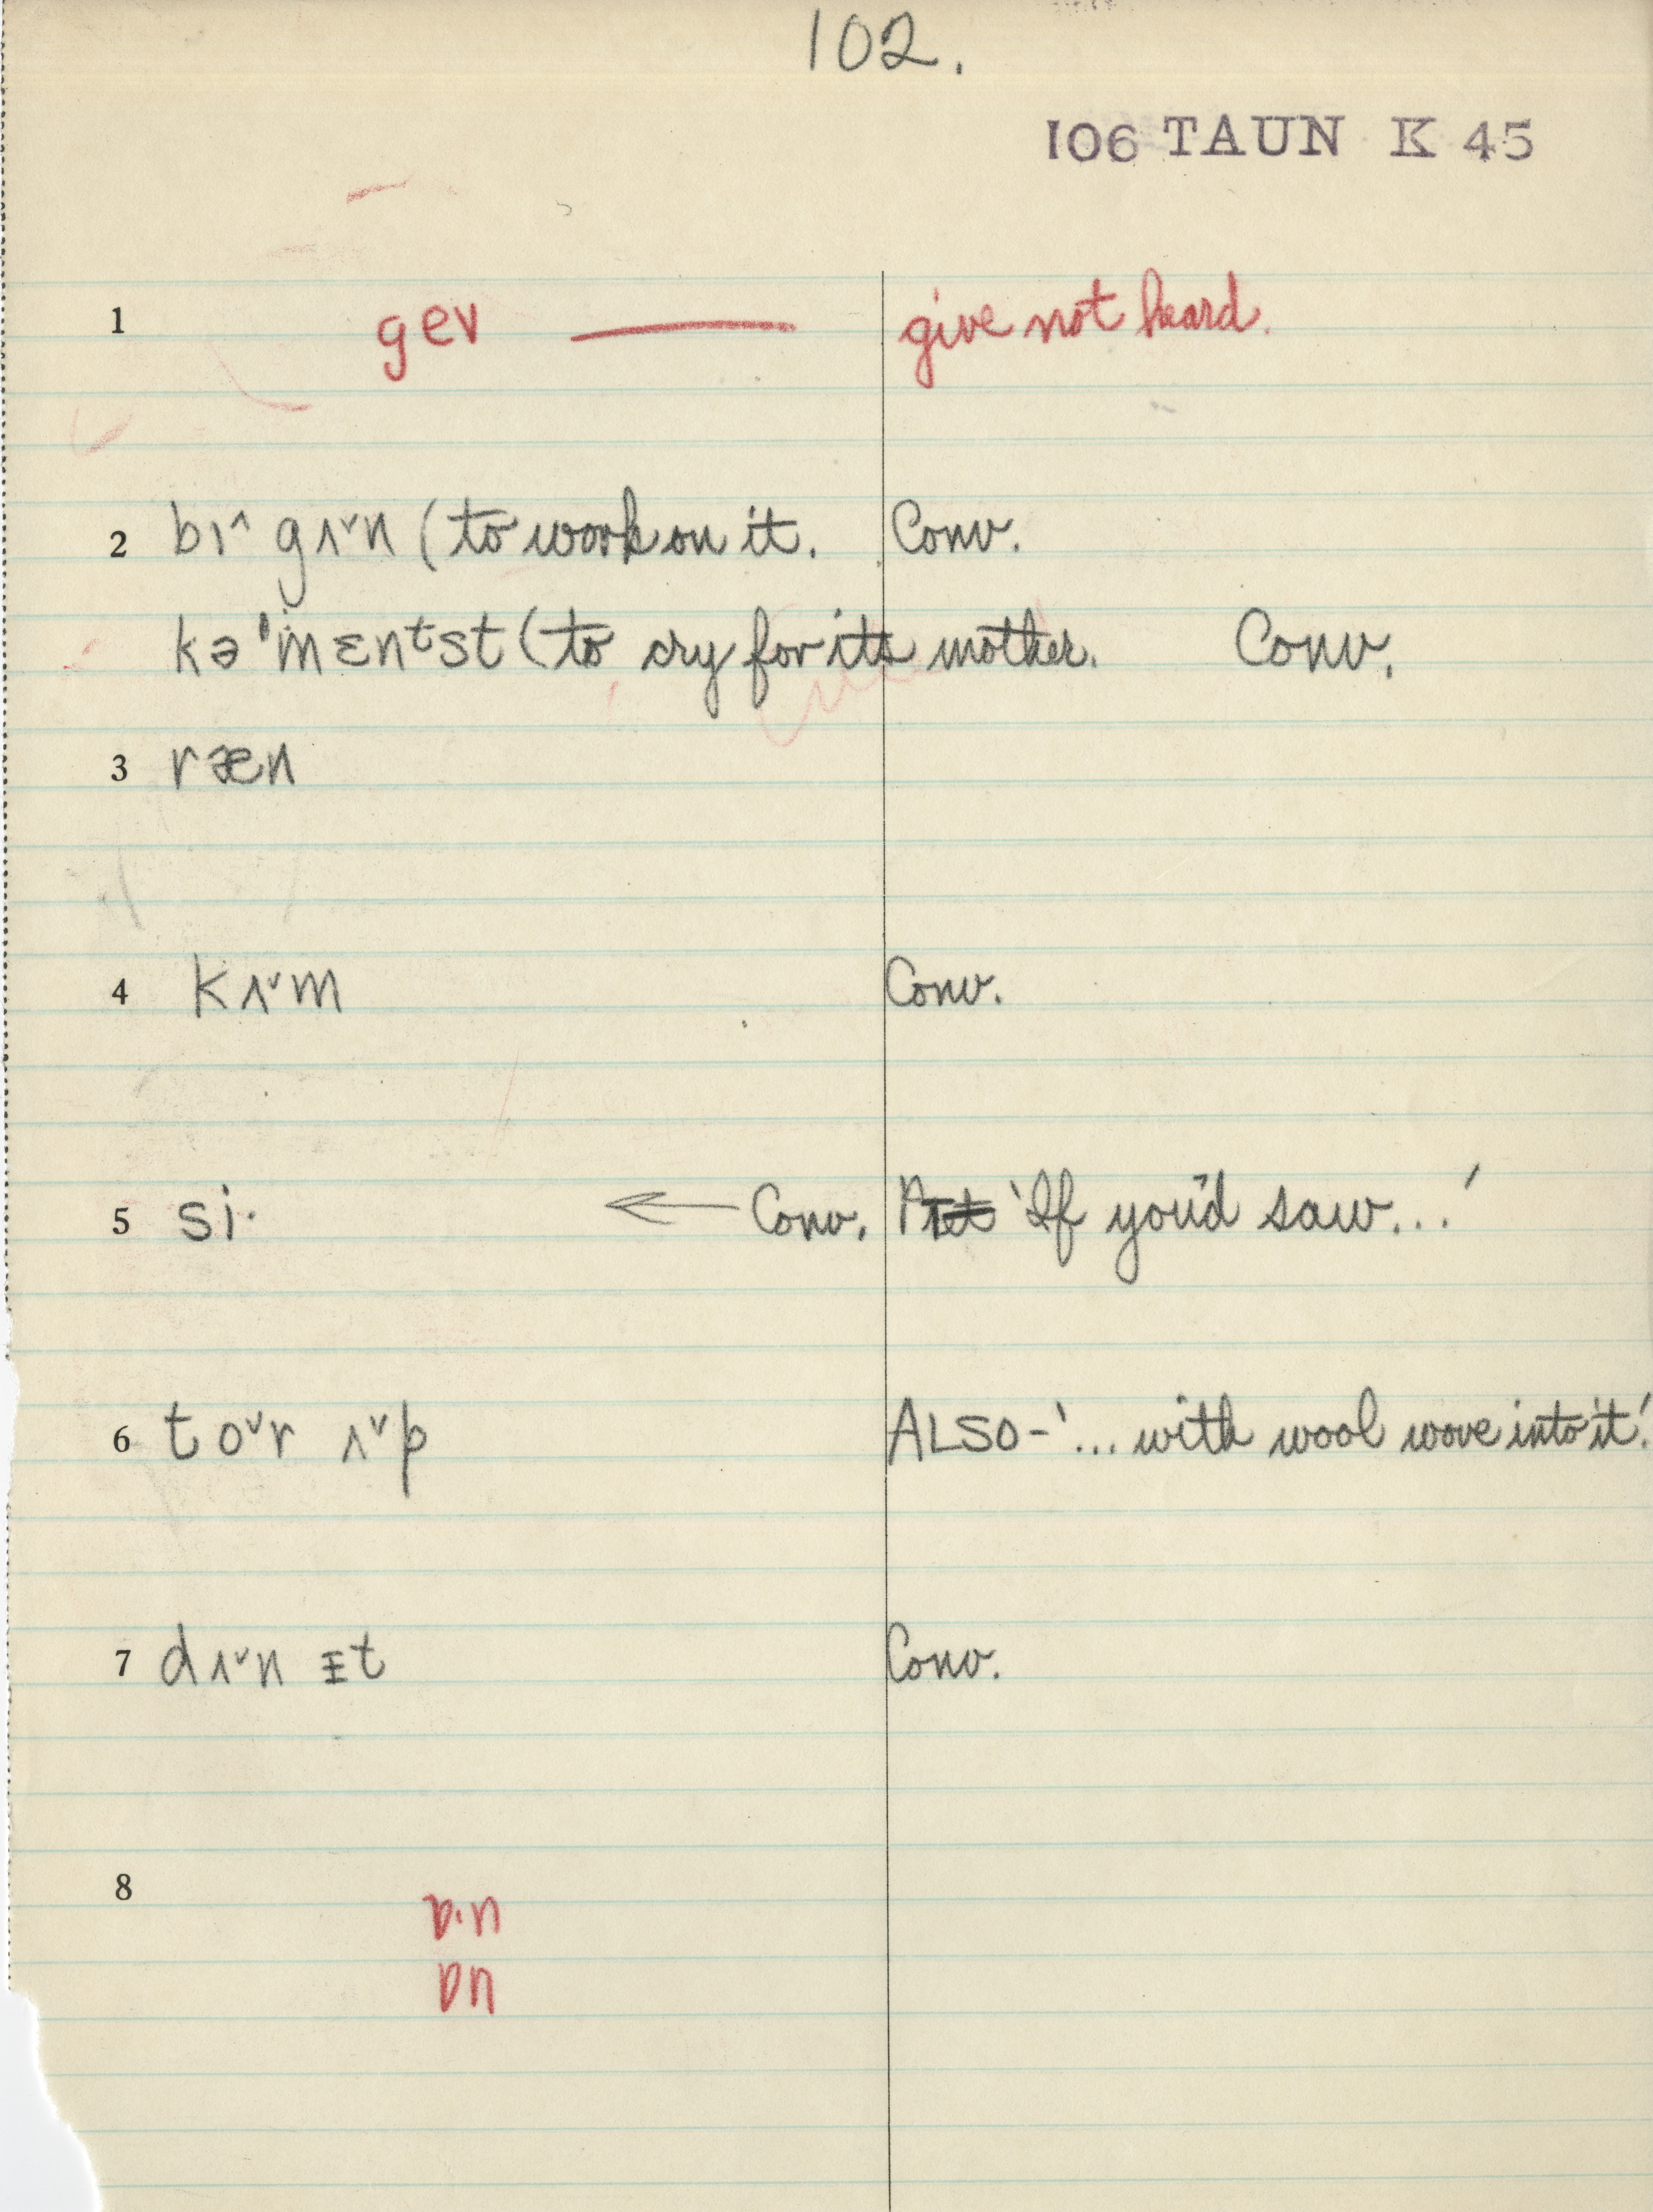 102.
106 TAUN K 45
1 gev — give not heard.
2 bɪ^ gʌˇn (to work on it. Conv.
kə'mɛnᵗst (to cry for its mother. Conv.
3 ræn
4 kʌˇm Conv.
5 si· ← Conv. 'If you'd saw...'
6 toˇr ʌˇp ALSO-'... with wool wove into it.'
7 dʌˇn ᵻt Conv.
8
ɒ·n
ɒn